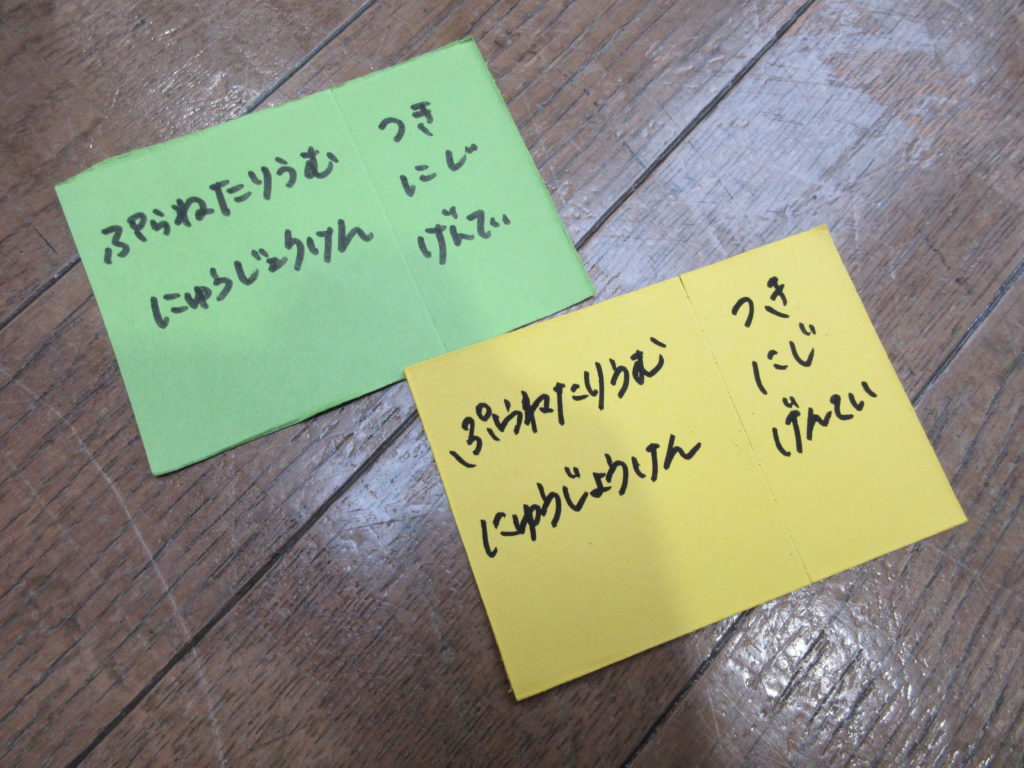 ぷらねたりうむ
にゅうじょうけん
つき
にじ
げんてい
ぷらねたりうむ
にゅうじょうけん
つき
にじ
げんてい